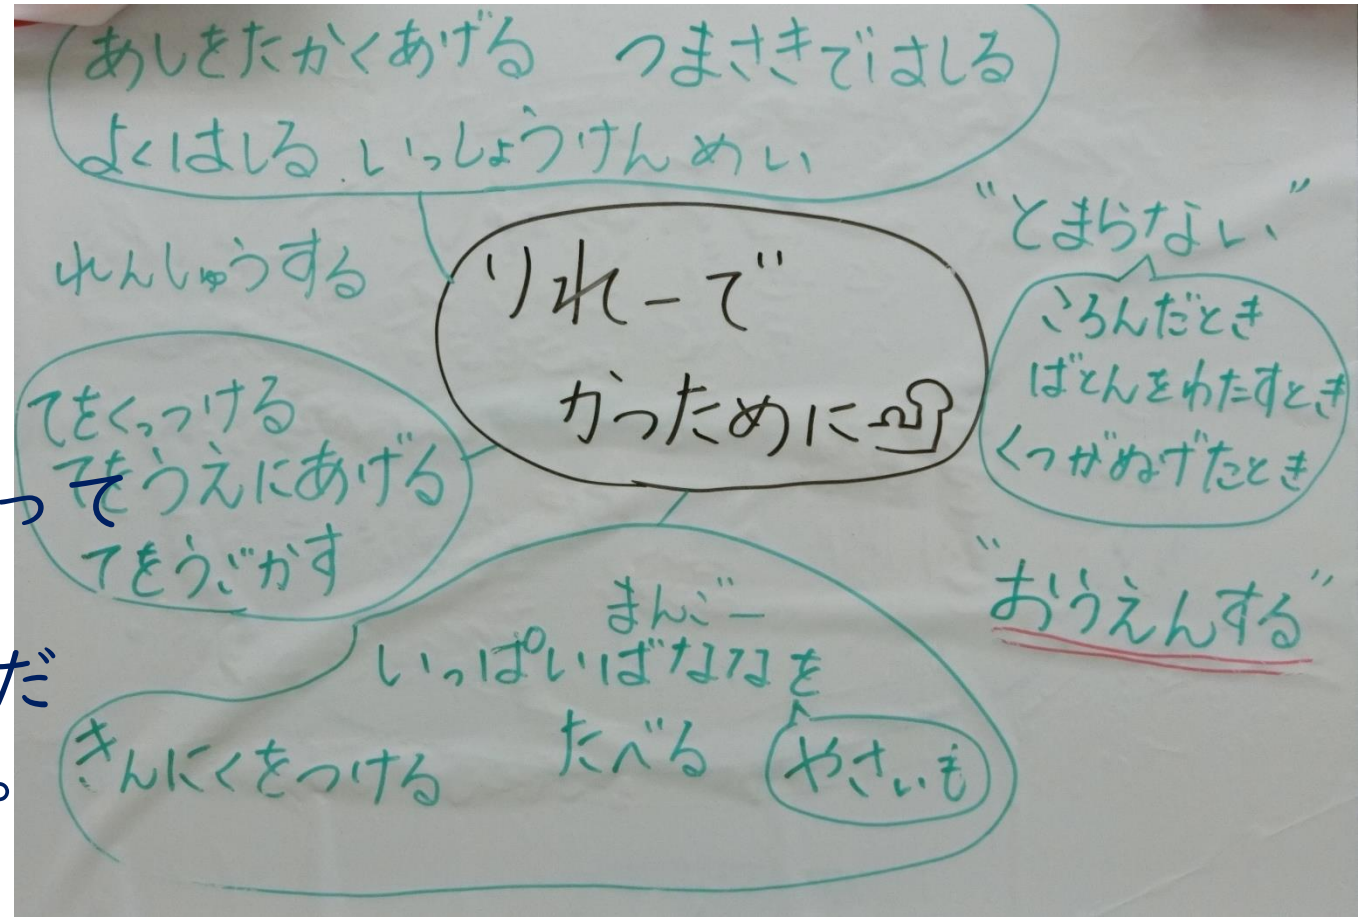 あしをたかくあげる　つまさきではしる
よくはしる いっしょうけんめい
れんしゅうする
りれーで
かつために
"とまらない"
ころんだとき
ばとんをわたすとき
くつがぬげたとき
てをくっつける
てをうえにあげる
てをうごかす
って
"おうえんする"
まんごー
いっぱいばななを
たべる
やさいも
きんにくをつける
だ
。